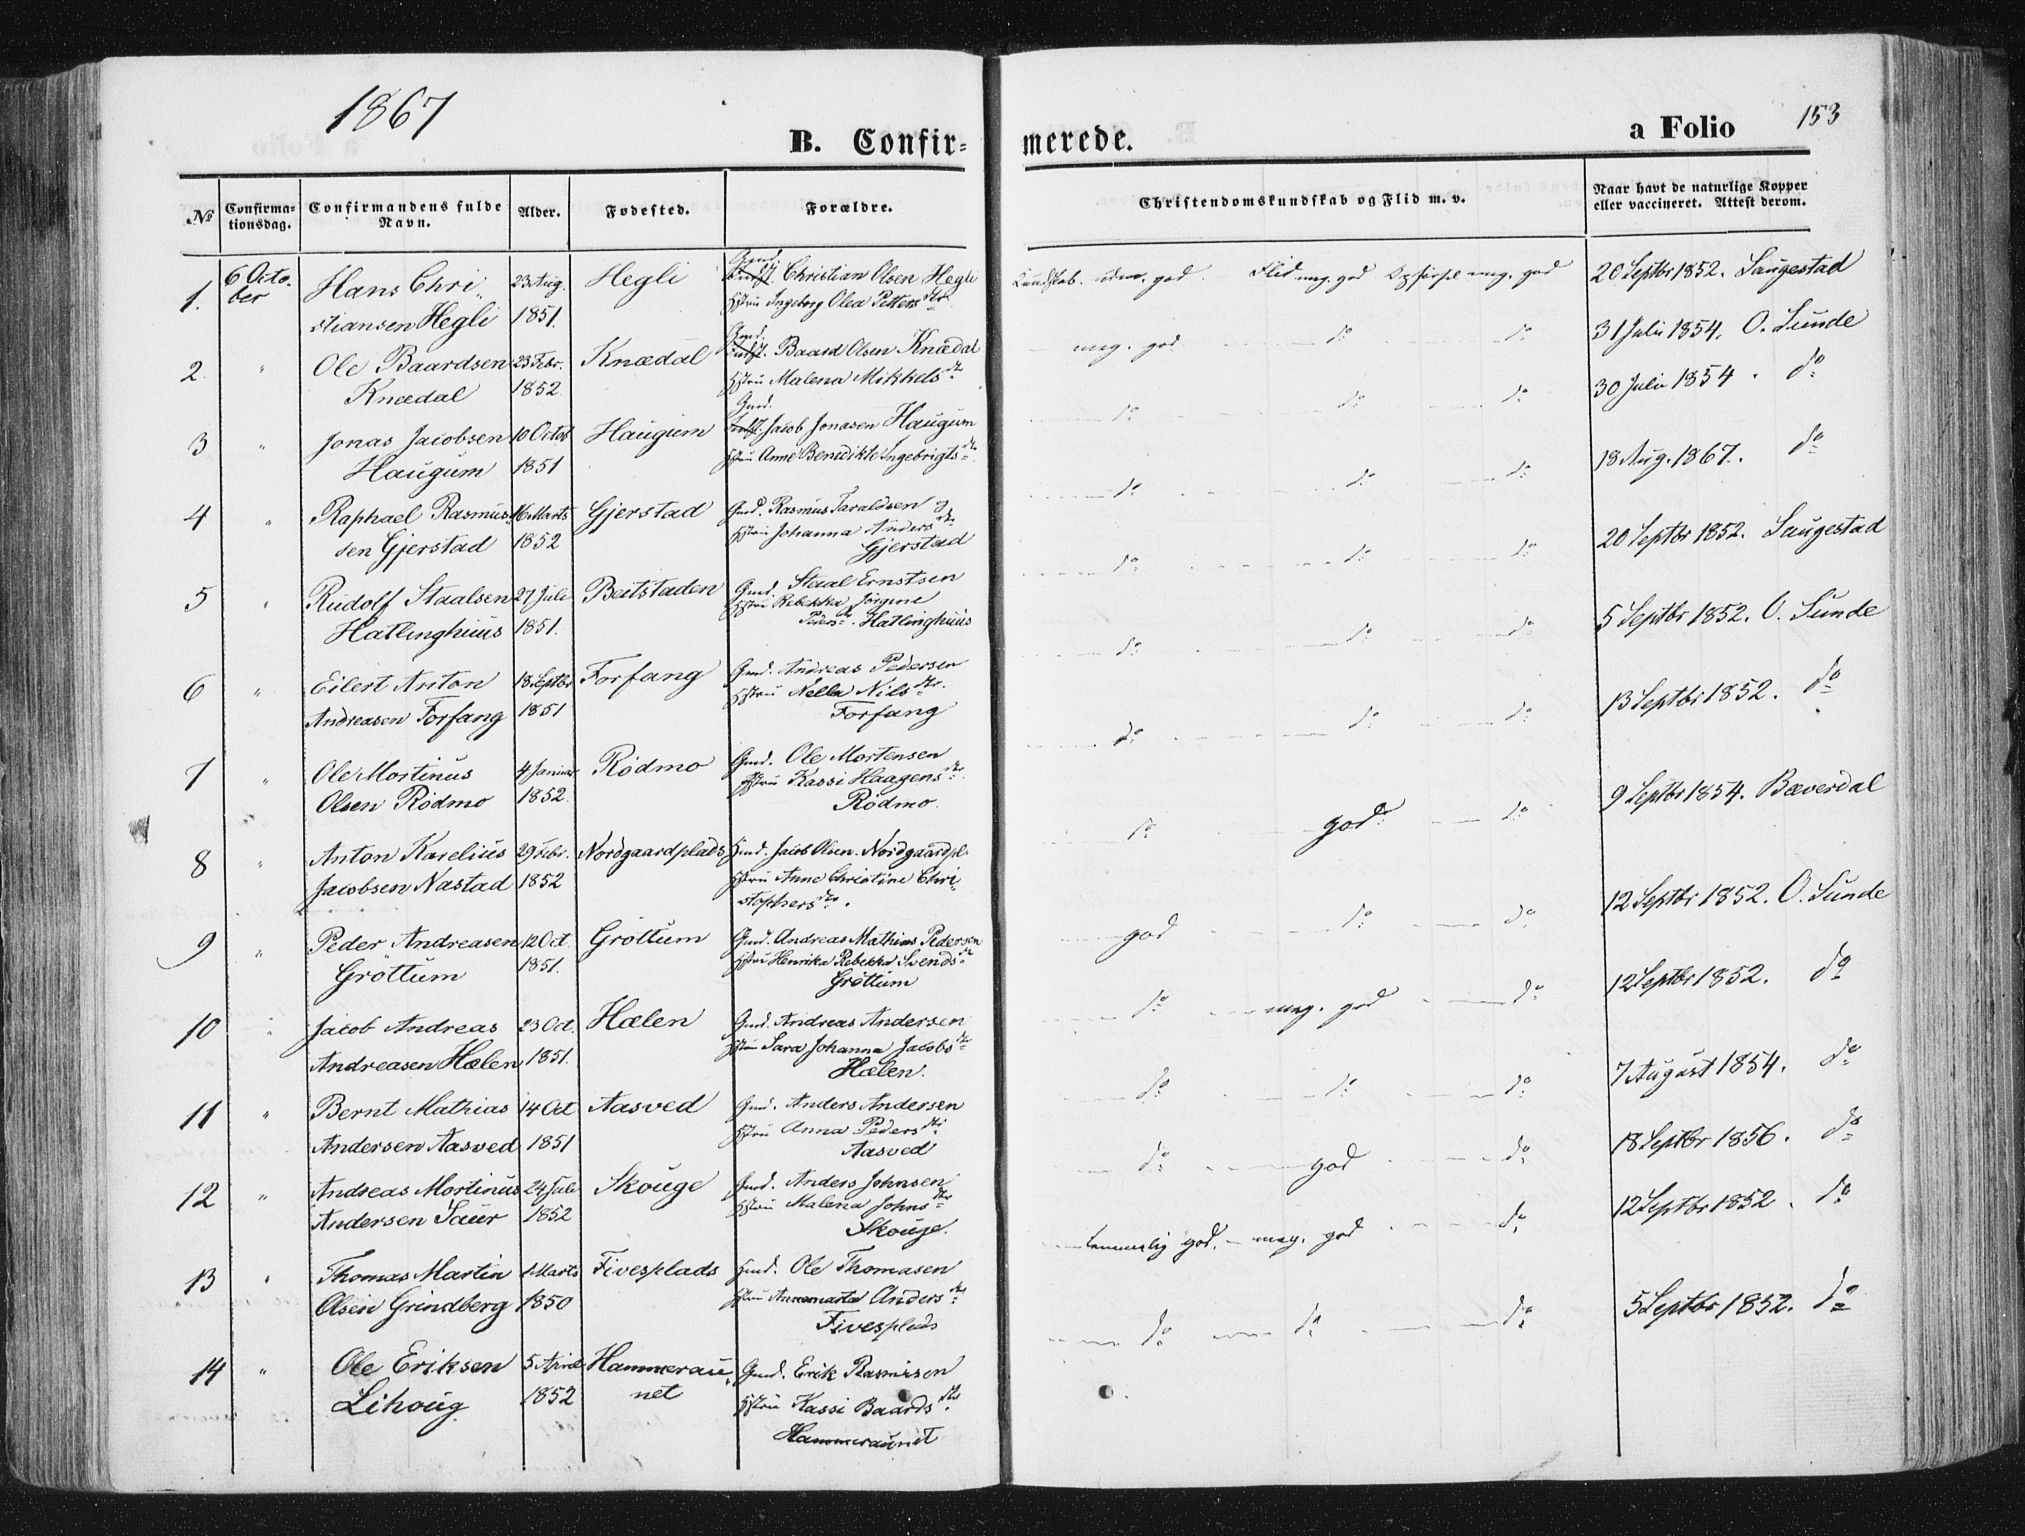 1867
B. Confir-
merede.
a Folio 153
No
Confirma-
tionsdag.
Confirmandens fulde
Navn.
Alder.
Fødested.
Forældre.
Christendomskundskab og Flid m. v.
Naar havt de naturlige Kopper
eller vaccineret. Attest derom.
1. 6 Octo-
ber
Hans Chri-
stiansen Hegli
23 Aug.
1851.
Hegli
Gmd.
Christian Olsen Hegli
Hstru Ingeborg Olea Petters dtr
Kundskab. udm. god. Flid meg. god Opførsel meg. god
20 Septbr 1852. Saugestad
2. "
Ole Baardsen
Knædal
23 Febr.
1852
Knædal
Gmd.
Baard Olsen Knædal
Hstru Malena Mikkels dtr
meg. god do do
31 Juli 1854. O. Sunde
3 "
Jonas Jacobsen
Haugum
10 Octob
1851
Haugum
Gmd.
Jacob Jonasen Haugum
Hstru Anne Benedikte Ingebrigts dtr
do do do
30 Juli 1854. do
4 "
Raphael Rasmus-
sen Gjerstad
16 Marts
1852
Gjerstad
Gmd. Rasmus Taraldsen og
Hstru Johanna Anders dtr
Gjerstad
do do do
18 Aug. 1867. do
5 "
Rudolf Staalsen
Hatlinghuus
27 Juli
1851.
Beitstaden
Gmd. Staal Ernstsen
Hstru Rebekka Jörgine
Peders dtr. Hatlinghuus
do do do
20 Septbr 1852. Saugestad
6 "
Eilert Anton
Andreasen Forfang
18 Septbr
1851
Forfang
Gmd. Andreas Pedersen
Hstru Nella Nils dtr.
Forfang
do do do
5 Septbr 1852. O. Sunde
7 "
Ole Mortinus
Olsen Rödmo
4 Januar
1852.
Rödmo
Gmd. Ole Mortensen
Hstru Kassi Haagens dtr
Rödmo.
do do do
13 Septbr 1852. do
8 "
Anton Karelius
Jacobsen Nastad
29 Febr.
1852
Nordgaardsplads
Hmd. Jacob Olsen. Nordgaardspl.
Hstru Anne Christine Chri-
stophers dtr.
do god do
9 Septbr 1854. Bæverdal
9 "
Peder Andreasen
Gröttum
12 Oct.
1851.
Gröttum
Gmd. Andreas Mathias Pedersen
Hstru Henrika Rebekka Svends dtr
Gröttum
god do do
12 Septbr 1852. O. Sunde
10 "
Jacob Andreas
Andreasen Hælen
23 Oct.
1851.
Hælen
Gmd. Andreas Andersen
Hstru Sara Johanna Jacobs dtr
Hælen.
do meg. god do
12 Septbr 1852. do
11 "
Bernt Mathias
Andersen Aasved
14 Oct
1851
Aasved
Gmd. Anders Andersen
Hstru Anna Peders dtr
Aasved
do do do
7 August 1854. do
12 "
Andreas Mortinus
Andersen Saur
24 Juli
1852
Skouge
Gmd. Anders Johnsen
Hstru Malena Johns dtr
Skouge.
do god do
18 Septbr 1856. do
13 "
Thomas Martin
Olsen Grindberg
1 Marts
1850
Fivesplads
Hmd. Ole Thomasen
Hstru Annamarta Anders dtr
Fivesplads
temmelig god. meg. god do
12 Septbr 1852. do
14 "
Ole Eriksen
Lihoug
5 April
1852
Hammerau-
net
Gmd. Erik Rasmusen
Hstru Kassi Baards dtr.
Hammeraunet
do do do
5 Septbr 1852. do